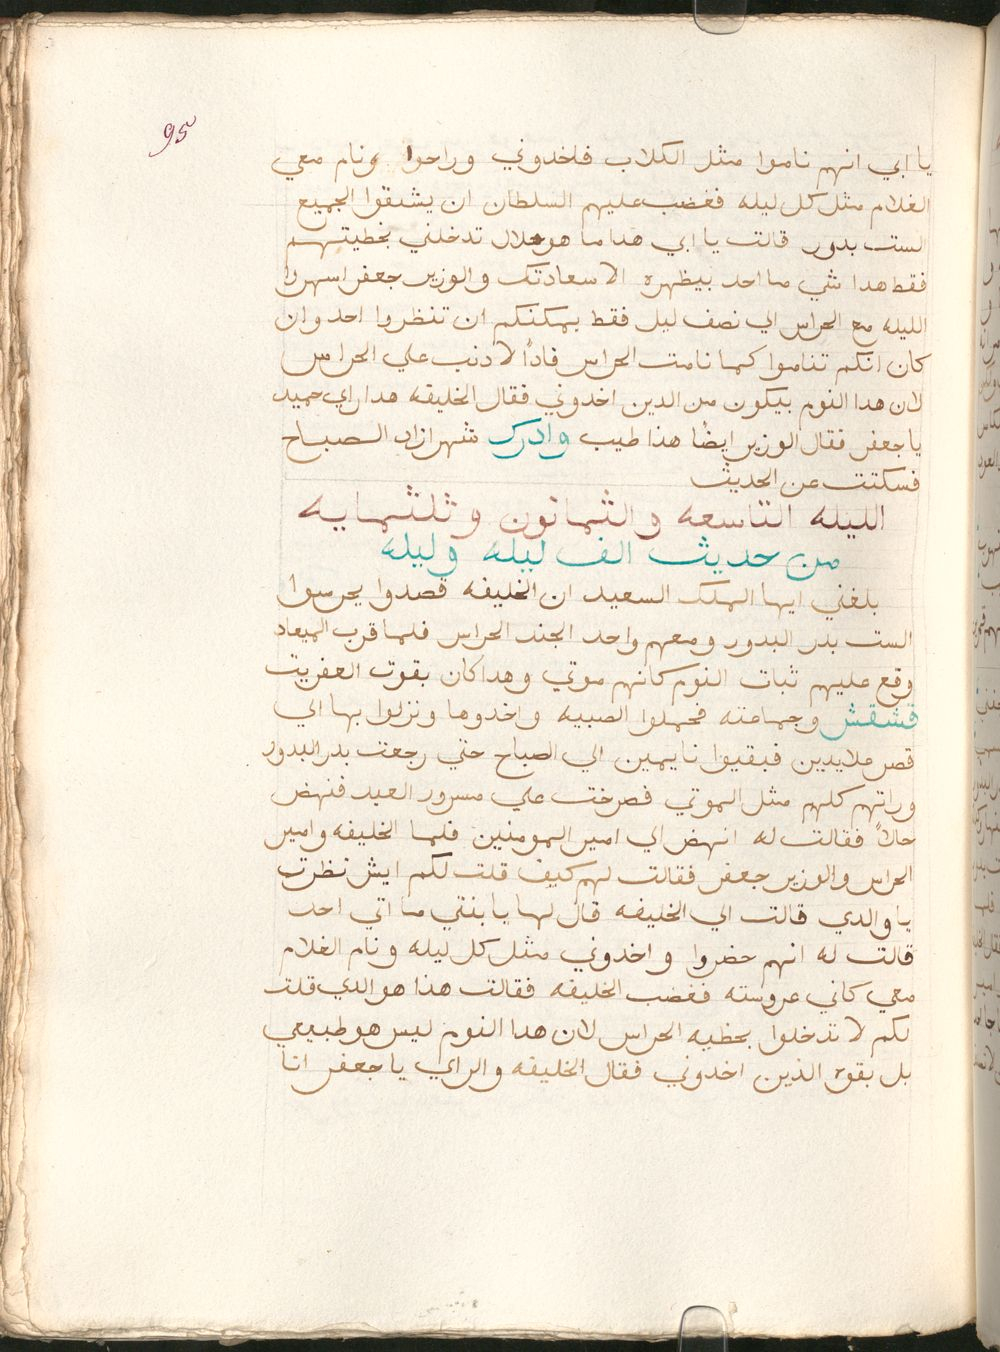 95
يا ابي انهم ناموا مثل الكلاب فلخدوني وراحوا ونام معي
الغلام مثل كل ليله فغضب عليهم السلطان ان يشنقوا الجميع
الست بدور قالت يا ابي هدا ما هو حلال تدخلني بخطيتهم
فقط هدا شي ما احد بيظهره الا سعادتك والوزير جعفر اسهروا
الليله مع الحراس الي نصف ليل فقط يمكنكم ان تنظروا احد وان
كان انكم تناموا كما نامت الحراس فاداً لا دنب علي الحراس
لان هدا النوم بيكون من الدين اخدوني فقال الخليفه هدا راي حميد
يا جعفر فقال الوزير ايضًا هذا طيب وادرك شهرازاد الصباح
فسكتت عن الحديث
الليله التاسعه والثمانون وثلثمايه
من حديث الف ليله وليله
بلغني ايها الملك السعيد ان الخليفه قصدوا يحرسوا
الست بدر البدور ومعهم واحد الجند الحراس فلما قرب الميعاد
وقع عليهم ثبات النوم كانهم موتي وهدا كان بقوت العفريت
قشقش وجماعته فحملوا الصبيه واخدوها ونزلوا بها الي
قصر ملايدين فبقيوا نايمين الي الصباح حتي رجعت بدر البدور
وراتهم كلهم مثل الموتي فصرخت علي مسرور العبد فنهض
حالاً فقالت له انهض الي امير المومنين فلما الخليفه وامير
الحراس والوزير جعفر فقالت لهم كيف قلت لكم ايش نظرت
يا والدي قالت الي الخليفه قال لها يا بنتي ما اتي احد
قالت له انهم حضروا واخدوني مثل كل ليله ونام الغلام
معي كاني عروسته فغضب الخليفه فقالت هذا هو الدي قلت
لكم لا تدخلوا بخطيه الحراس لان هدا النوم ليس هو طبيعي
بل بقوه الذين اخدوني فقال الخليفه والراي يا جعفر انا